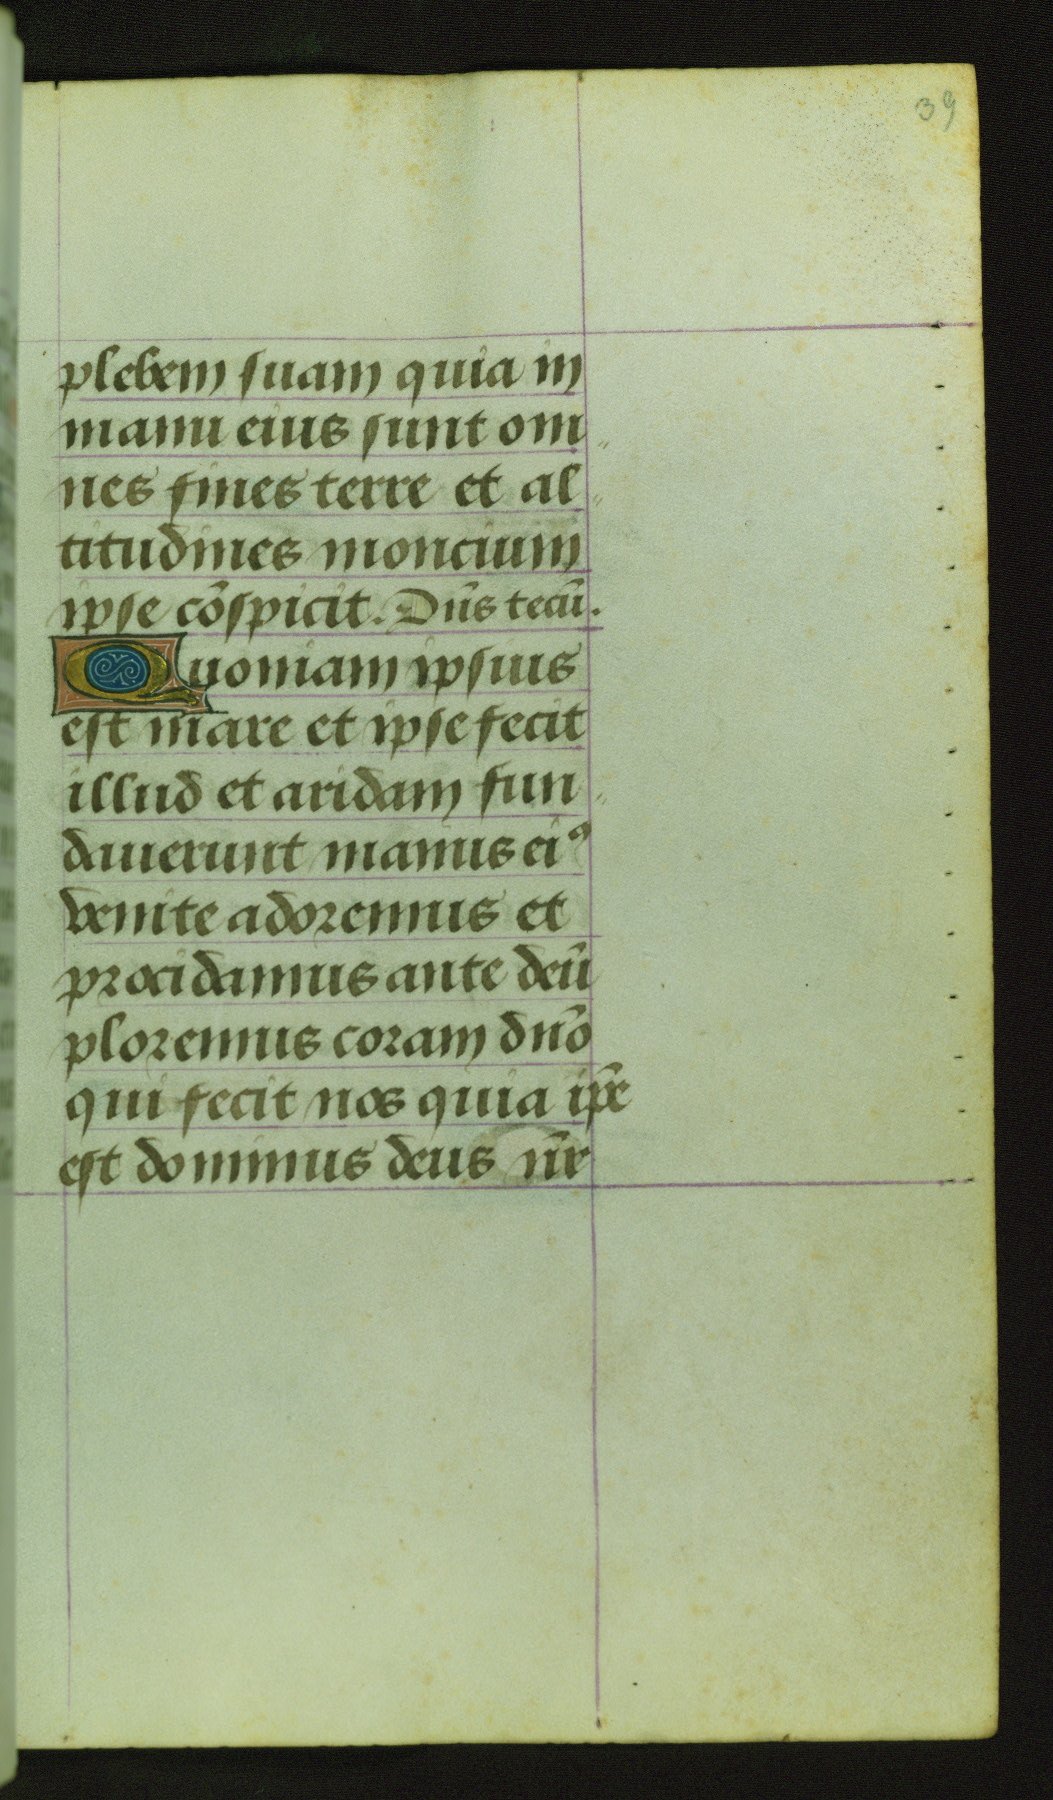 39
plebem suam quia in
manu eius sunt om
nes fines terre et al
titudines moncium
ipse cōspicit. Dn̄s tecū.
Quoniam ipsius
est mare et ipse fecit
illud et aridam fun
dauerunt manus eiꝰ
venite adoremus et
procidamus ante deū
ploremus coram dn̄o
qui fecit nos quia ip̄e
est dominus deus nr̄